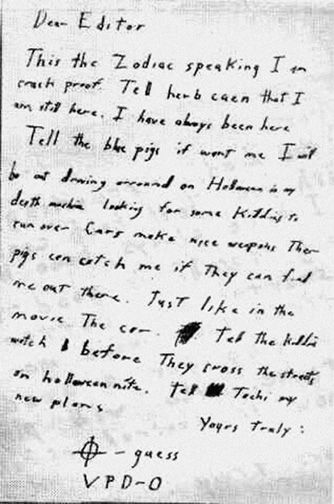 Dear Editor
This the Zodiac speaking I am
crack proof. Tell herb caen that I
am still here. I have always been here
Tell the blue pigs if want me I will
be out driving arround on Halloween in my
death machine looking for some Kiddies to
run over Cars make nice weapons Ther
pigs can catch me if They can find
me out there. Just like in the
movie The car. Tell the kiddies
watch before They cross the streets
on halloween nite. Tell Tochi my
new plans
Yours Truly:
- guess
VPD-0